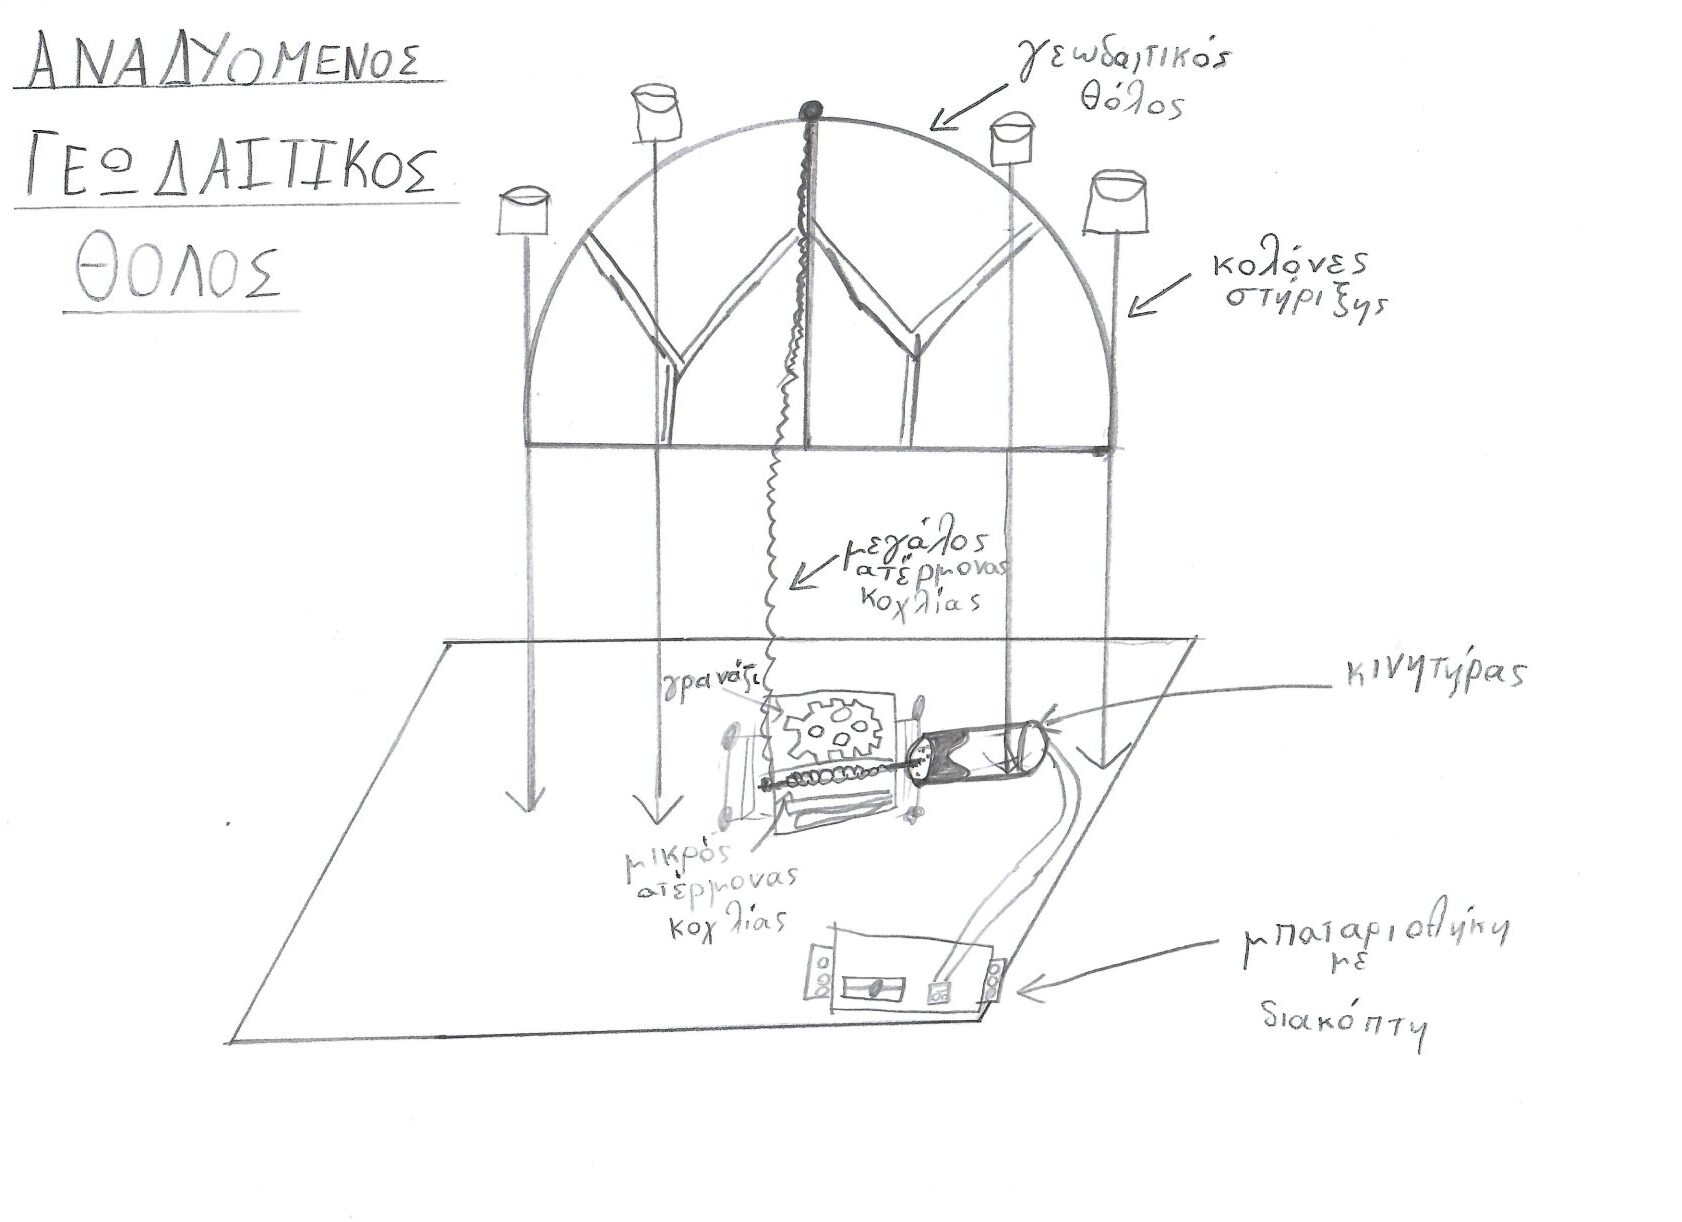 ΑΝΑΔΥΟΜΕΝΟΣ
ΓΕΩΔΑΙΤΙΚΟΣ
ΘΟΛΟΣ
γεωδαιτικός
θόλος
κολόνες
στήριξης
μεγάλος
ατέρμονας
κοχλίας
γρανάζι
κινητήρας
μικρός
ατέρμονας
κοχλίας
μπαταριοθήκη
με
διακόπτη